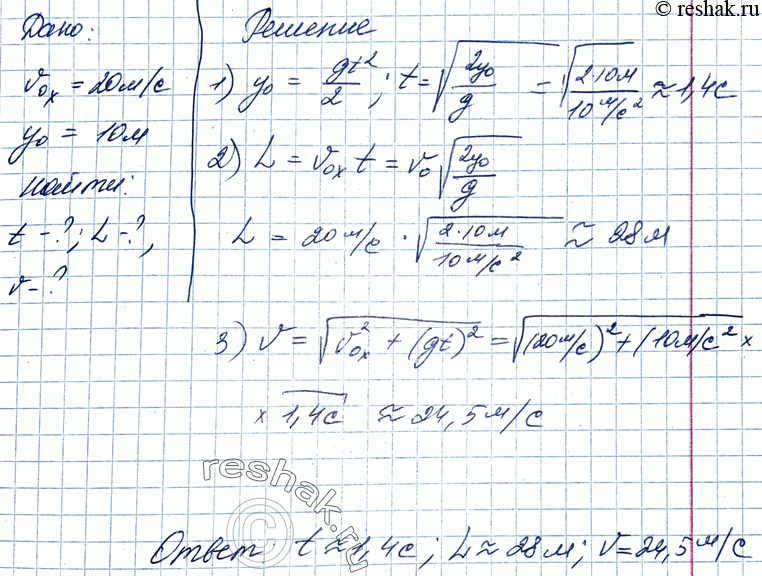 © reshak.ru
Дано:
v₀ₓ = 20 м/с
y₀ = 10 м
найти:
t - ?; L - ?,
v - ?
Решение
1) y₀ = gt²/2 ; t = √(2y₀/g) = √(2·10м/10 м/с²) ≈ 1,4с
2) L = v₀ₓ t = v₀ √(2y₀/g)
L = 20 м/с · √(2·10м/10 м/с²) ≈ 28 м
3) v = √(v₀ₓ² + (gt)²) = √((20 м/с)² + (10 м/с² ×
× 1,4с ≈ 24,5 м/с
reshak.ru
©
Ответ t ≈ 1,4с ; L ≈ 28 м ; v = 24,5 м/с